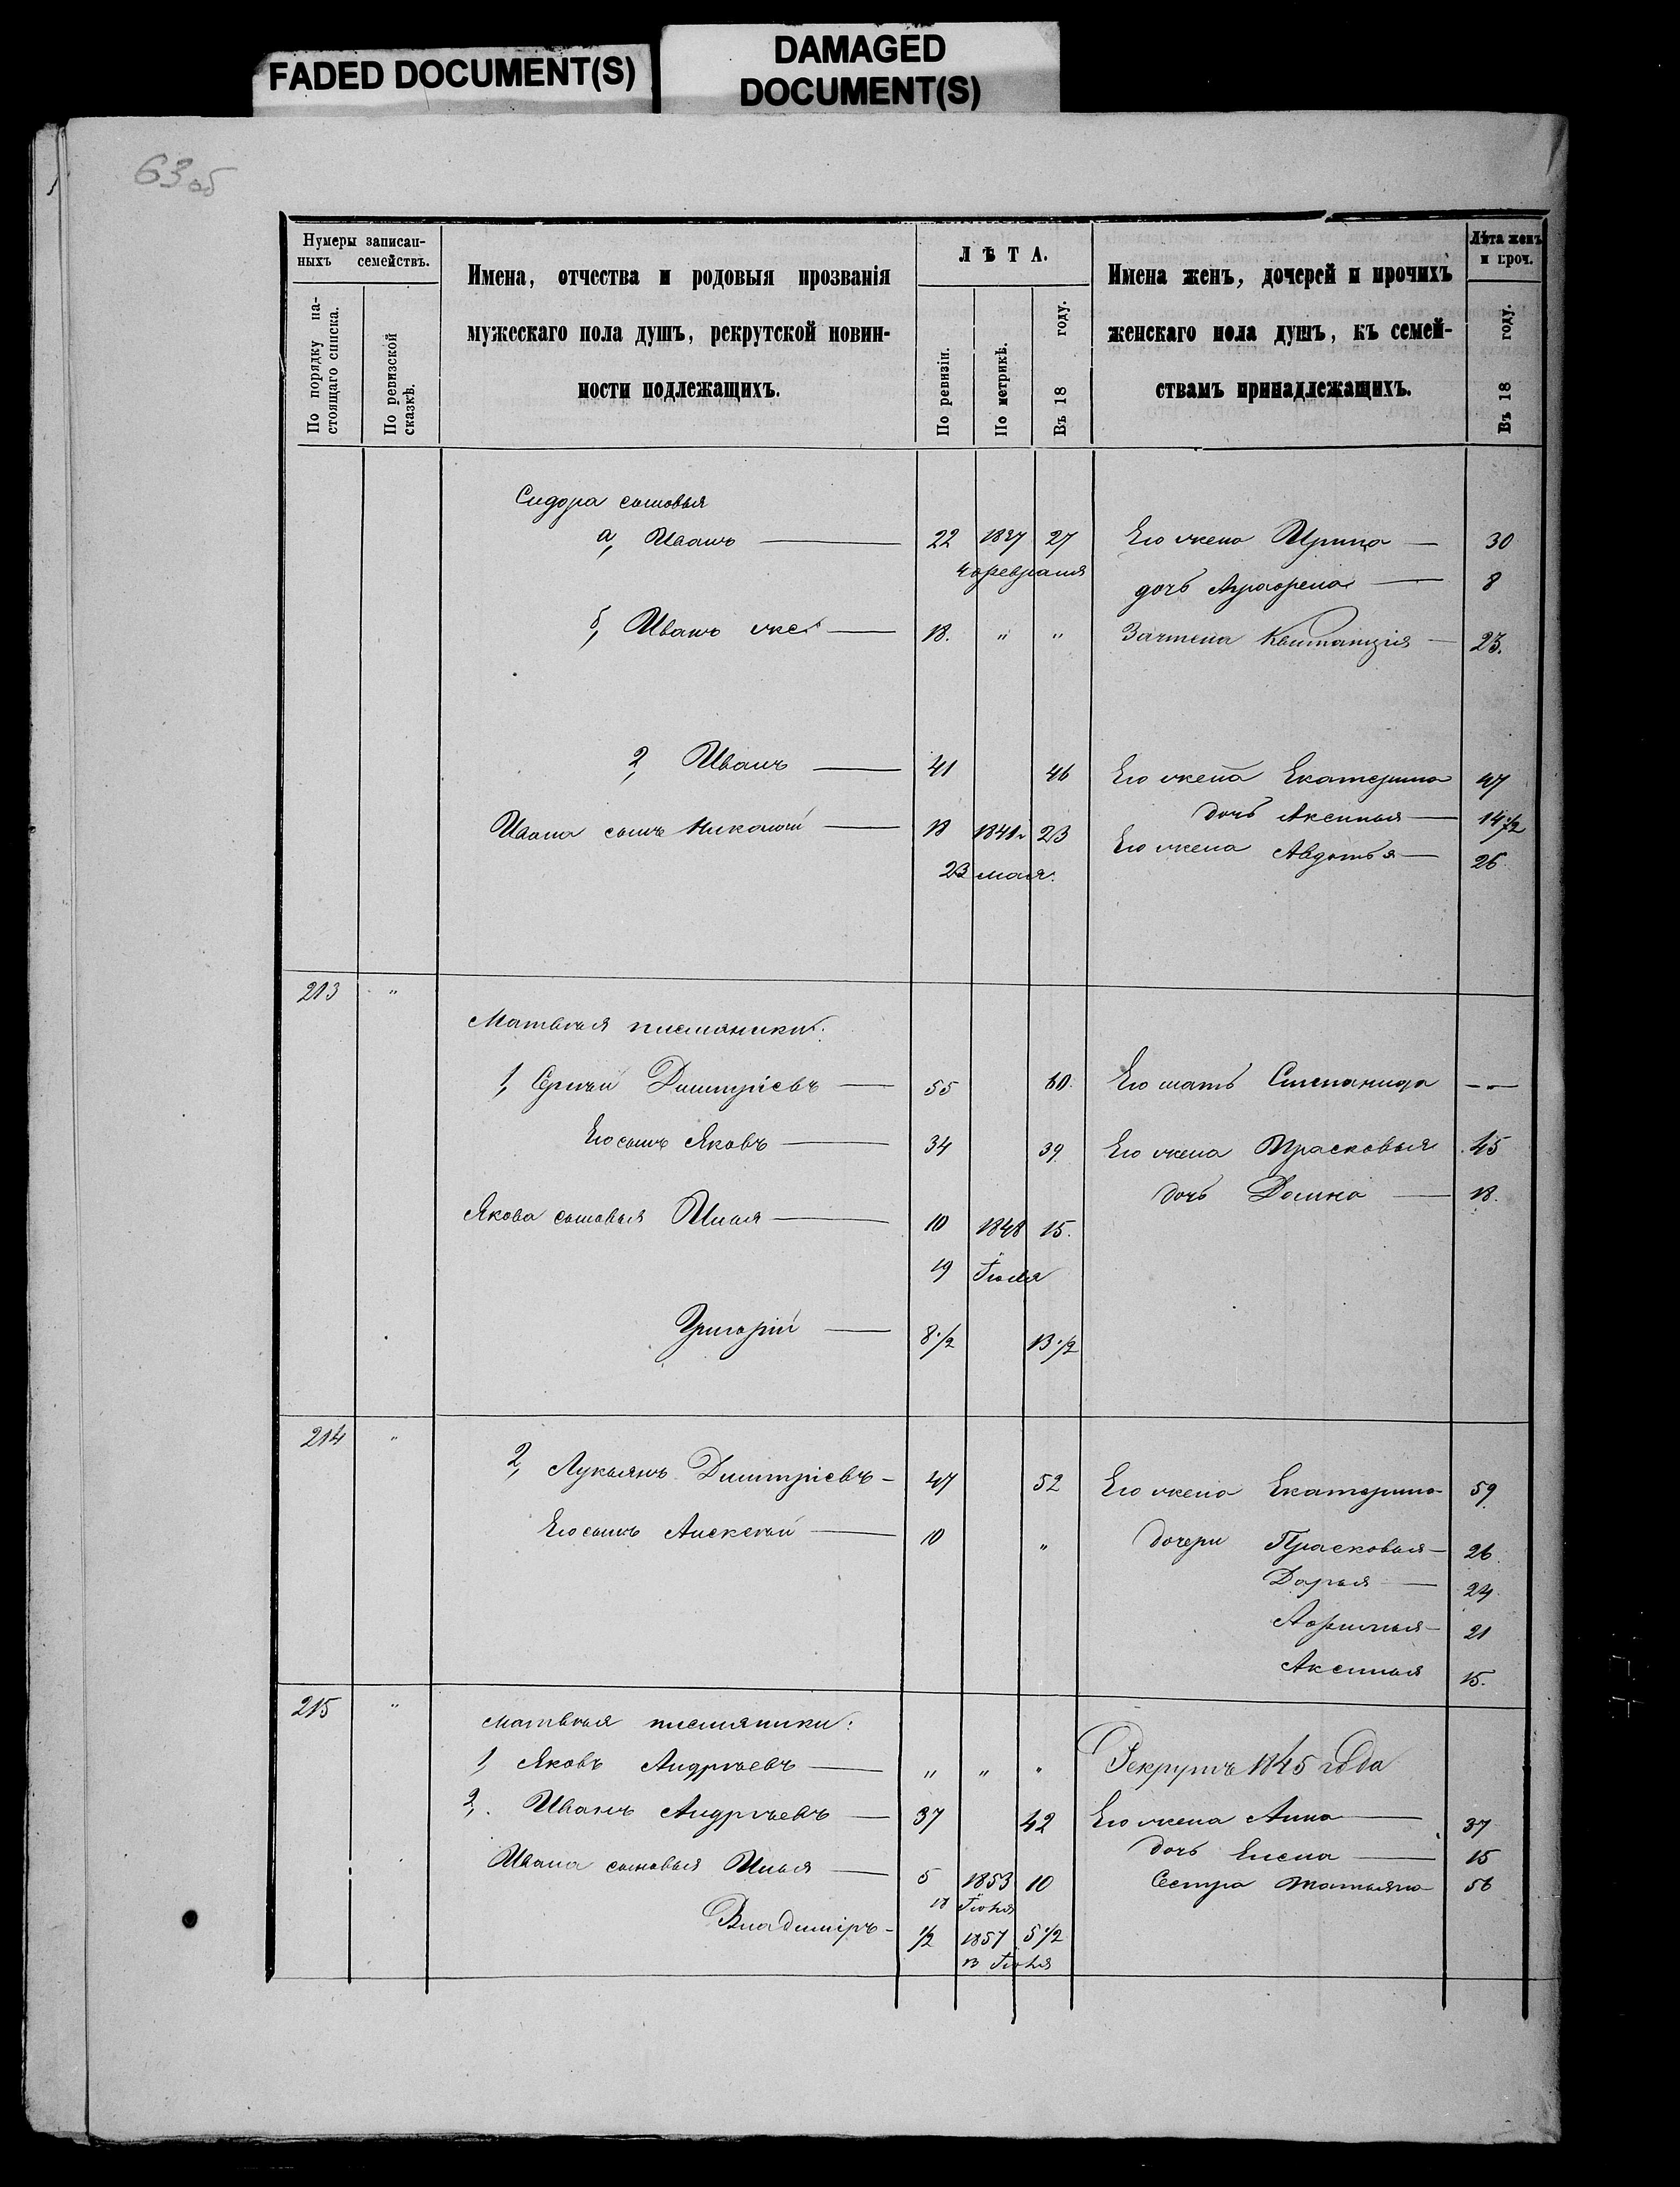 FADED DOCUMENT(S)
DAMAGED
DOCUMENT(S)
63об
Нумеры записан-
ныхъ семействъ.
По порядку на-
стоящаго списка.
По ревизской
сказкѣ.
Имена, отчества и родовыя прозванія
мужескаго пола душъ, рекрутской повин-
ности подлежащихъ.
ЛѢТА.
По ревизіи.
По метрикѣ.
Въ 18 году.
Имена женъ, дочерей и прочихъ
женскаго пола душъ, къ семей-
ствамъ принадлежащихъ.
Лѣта женъ
и проч.
Въ 18 году.
Сидора сыновья
а, Иванъ — 22 1837 27 Его жена Ирина — 30
4 февраля
дочь Аграфена — 8
б, Иванъ же — 18. " " Зачтена Квитанція — 23.
2, Иванъ — 41 46 Его жена Екатерина 47
дочь Аксинья — 14 1/2
Ивана сынъ Николай — 18 1841 23 Его жена Авдотья — 26
23 мая.
213 "
Матвѣя племяники:
1, Сергѣй Димитріевъ — 55 60. Его мать Степанида —
Его сынъ Яковъ — 34 39 Его жена Прасковья 45
дочь Домна — 18.
Якова сыновья Илья — 10 1848 15.
19 Іюля
Григорій — 8 1/2 13 1/2
214 "
2, Лукьянъ Димитріевъ — 47 52 Его жена Екатерина 59
Его сынъ Алексѣй — 10 " дочери Прасковья — 26
Дарья — 24
Афимья — 21
Аксинья 15.
215 "
Матвѣя племяники:
1, Яковъ Андрѣевъ — " " " Рекрутъ 1845 года
2, Иванъ Андрѣевъ — 37 42 Его жена Анна — 37
дочь Елена — 15
Ивана сыновья Илья — 5 1853 10 Сестра Татьяна 56
18 Іюня
Владиміръ — 1/2 1857 5 1/2
13 Іюня